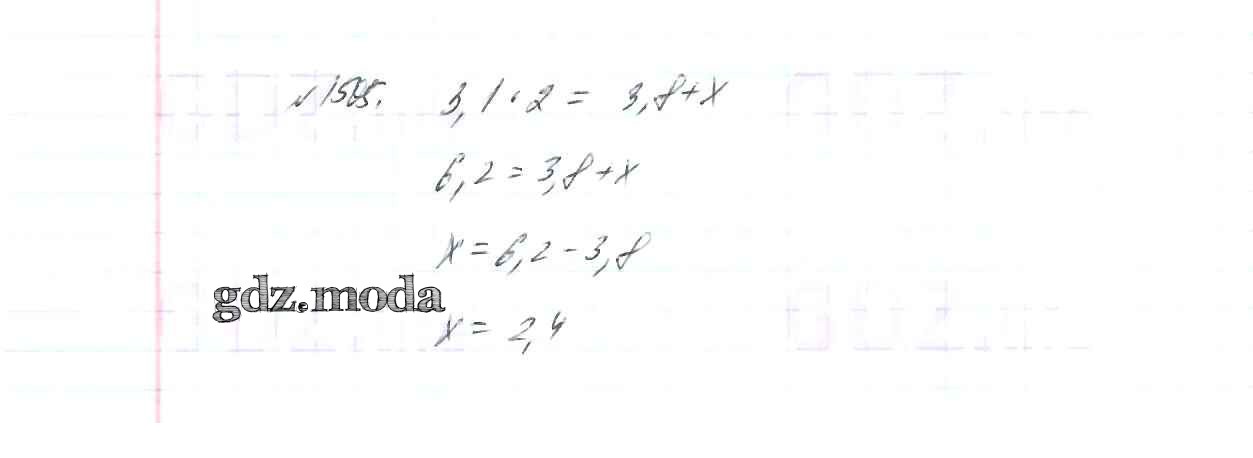 №1505. 3,1·2 = 3,8+x
6,2 = 3,8+x
x = 6,2 - 3,8
gdz.moda
x = 2,4